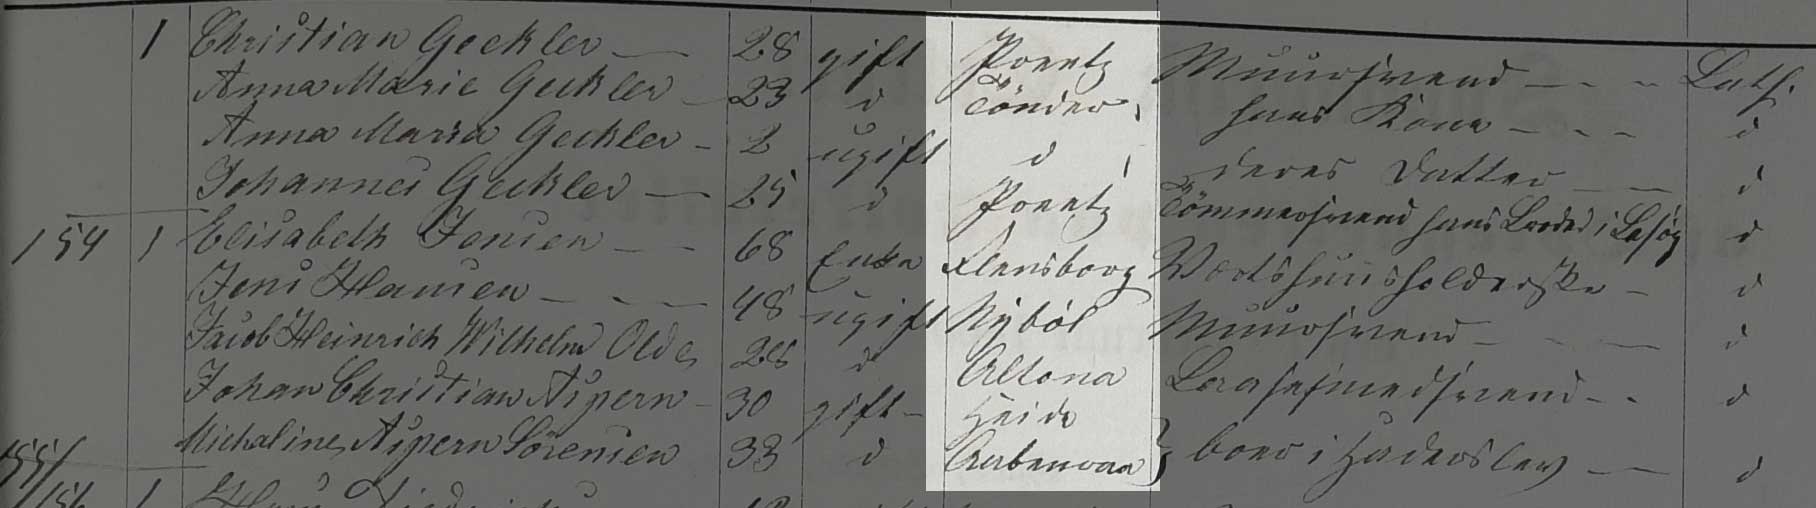 1 Christian Geckler 28 gift Preetz Muursvend Luth.
Anna Marie Geckler 23 d Tönder hans Kone d
Anna Maria Geckler 2 ugift d deres Datter d
Johannes Geckler 25 d Preetz Tömmersvend hans Broder i Besög d
154 1 Elisabeth Jensen 68 Enke Flensborg Værtshuusholderske d
Jens Hansen 48 ugift Nyböl Muursvend d
Jacob Heinrich Wilhelm Olde 28 d Altona d
Johan Christian Aspern 30 gift Heide
155 Michaline Aspern Sörensen 33 d Aabenraa } boer i Haderslev d
156 1 Hans